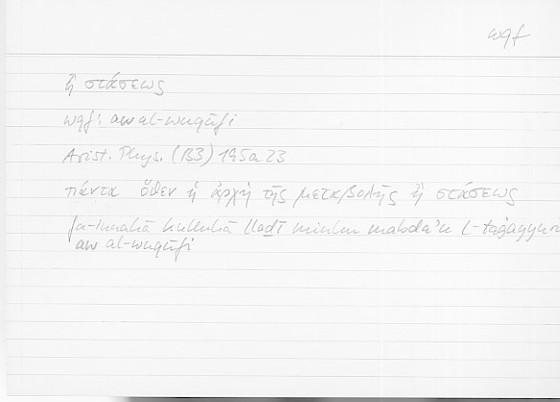 wqf
ἢ στάσεως
wqf: aw al-wuqūfi
Arist. Phys. (B3) 195a23
πάντα ὅθεν ἡ ἀρχὴ τῆς μεταβολῆς ἢ στάσεως
fa-innahā kulluhā llaḏī minhu mabda'u l-taġayyuri
aw al-wuqūfi